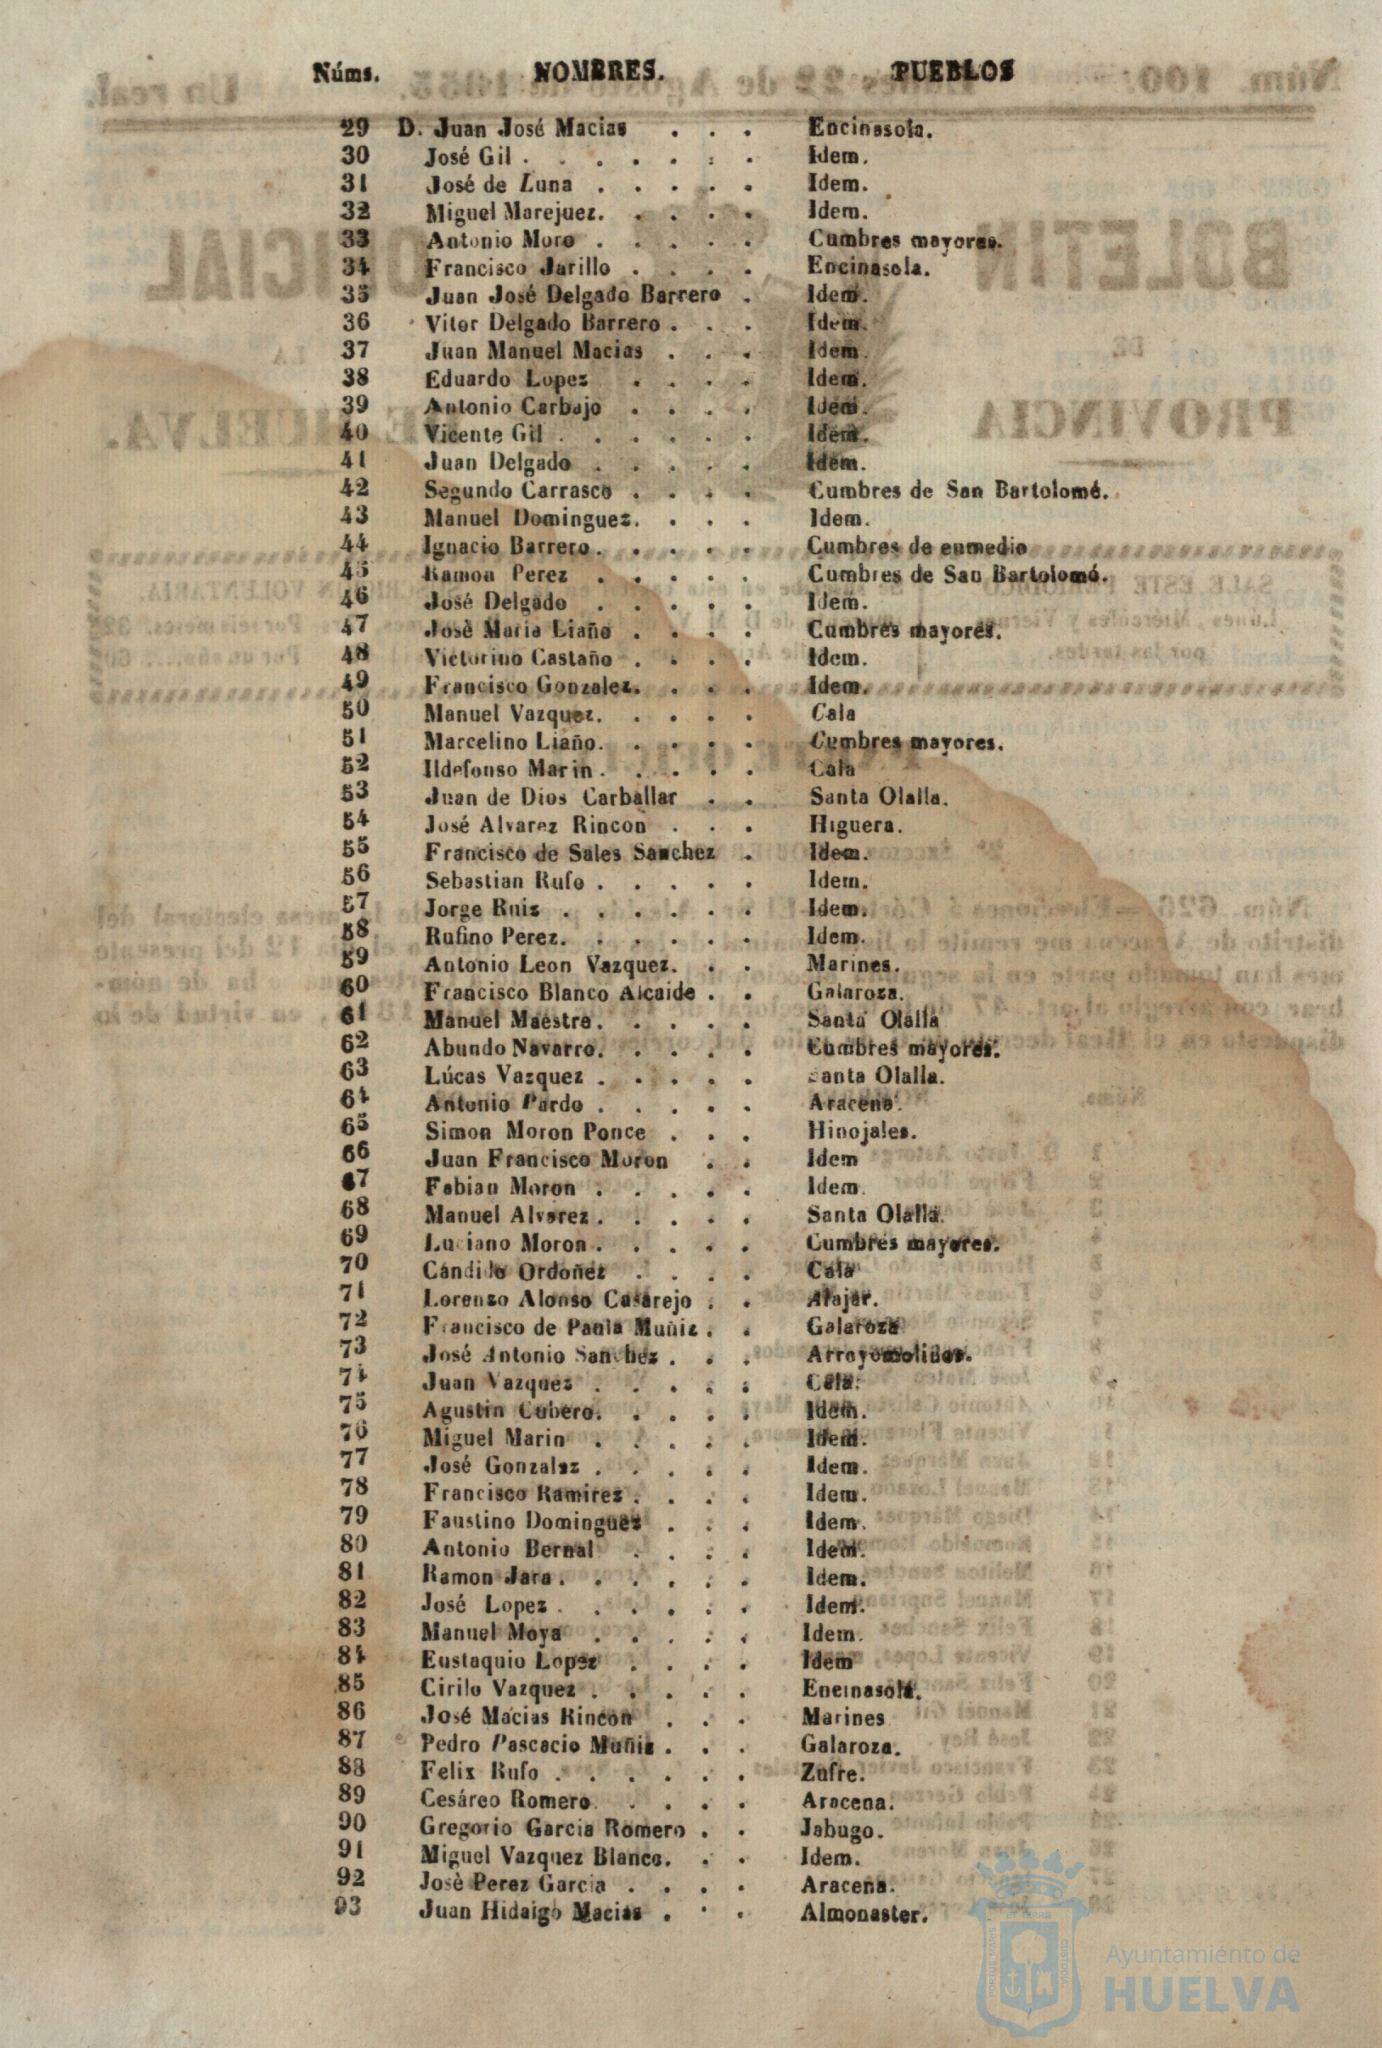 Núms. NOMBRES. PUEBLOS
29 D. Juan José Macias . . . Encinasola.
30 José Gil . . . . . . . Idem.
31 José de Luna . . . . . Idem.
32 Miguel Marejuez. . . . . Idem.
33 Antonio Moro . . . . . Cumbres mayores.
34 Francisco Jarillo . . . . Encinasola.
35 Juan José Delgado Barrero . Idem.
36 Vitor Delgado Barrero . . . Idem.
37 Juan Manuel Macias . . . Idem.
38 Eduardo Lopez . . . . Idem.
39 Antonio Carbajo . . . . Idem.
40 Vicente Gil . . . . . . Idem.
41 Juan Delgado . . . . . Idem.
42 Segundo Carrasco . . . . Cumbres de San Bartolomé.
43 Manuel Dominguez. . . . Idem.
44 Ignacio Barrero. . . . . Cumbres de enmedio
45 Ramon Perez . . . . . Cumbres de San Bartolomé.
46 José Delgado . . . . . Idem.
47 Josè Maria Liaño . . . . Cumbres mayores.
48 Victorino Castaño . . . . Idem.
49 Francisco Gonzalez. . . . Idem.
50 Manuel Vazquez. . . . . Cala
51 Marcelino Liaño. . . . . Cumbres mayores.
52 Ildefonso Marin . . . . . Cala
53 Juan de Dios Carballar . . Santa Olalla.
54 José Alvarez Rincon . . . Higuera.
55 Francisco de Sales Sanchez . Idem.
56 Sebastian Rufo . . . . . Idem.
57 Jorge Ruiz . . . . . . Idem.
58 Rufino Perez. . . . . . Idem.
59 Antonio Leon Vazquez. . . Marines.
60 Francisco Blanco Alcaide . . Galaroza.
61 Manuel Maestre. . . . . Santa Olalla
62 Abundo Navarro. . . . . Cumbres mayores.
63 Lúcas Vazquez . . . . . Santa Olalla.
64 Antonio Pardo . . . . . Aracena.
65 Simon Moron Ponce . . . Hinojales.
66 Juan Francisco Moron . . Idem
67 Fabian Moron . . . . . Idem.
68 Manuel Alvarez . . . . . Santa Olalla.
69 Luciano Moron . . . . . Cumbres mayores.
70 Cándido Ordoñez . . . . Cala
71 Lorenzo Alonso Casarejo . . Alajar.
72 Francisco de Paula Muñiz . . Galaroza
73 José Antonio Sanchez . . . Arroyomolinos.
74 Juan Vazquez . . . . . Cala.
75 Agustin Cubero. . . . . Idem.
76 Miguel Marin . . . . . Idem.
77 José Gonzalez . . . . . Idem.
78 Francisco Ramirez . . . . Idem.
79 Faustino Dominguez . . . Idem.
80 Antonio Bernal . . . . Idem.
81 Ramon Jara . . . . . . Idem.
82 José Lopez . . . . . . Idem.
83 Manuel Moya . . . . . Idem.
84 Eustaquio Lopez . . . . Idem
85 Cirilo Vazquez . . . . . Encinasola.
86 José Macias Rincon . . . Marines
87 Pedro Pascacio Muñiz . . . Galaroza.
88 Felix Rufo . . . . . . Zufre.
89 Cesáreo Romero. . . . . Aracena.
90 Gregorio Garcia Romero . . Jabugo.
91 Miguel Vazquez Blanco. . . Idem.
92 Josè Perez Garcia . . . . Aracena.
93 Juan Hidalgo Macias . . . Almonaster.
Ayuntamiento de
HUELVA